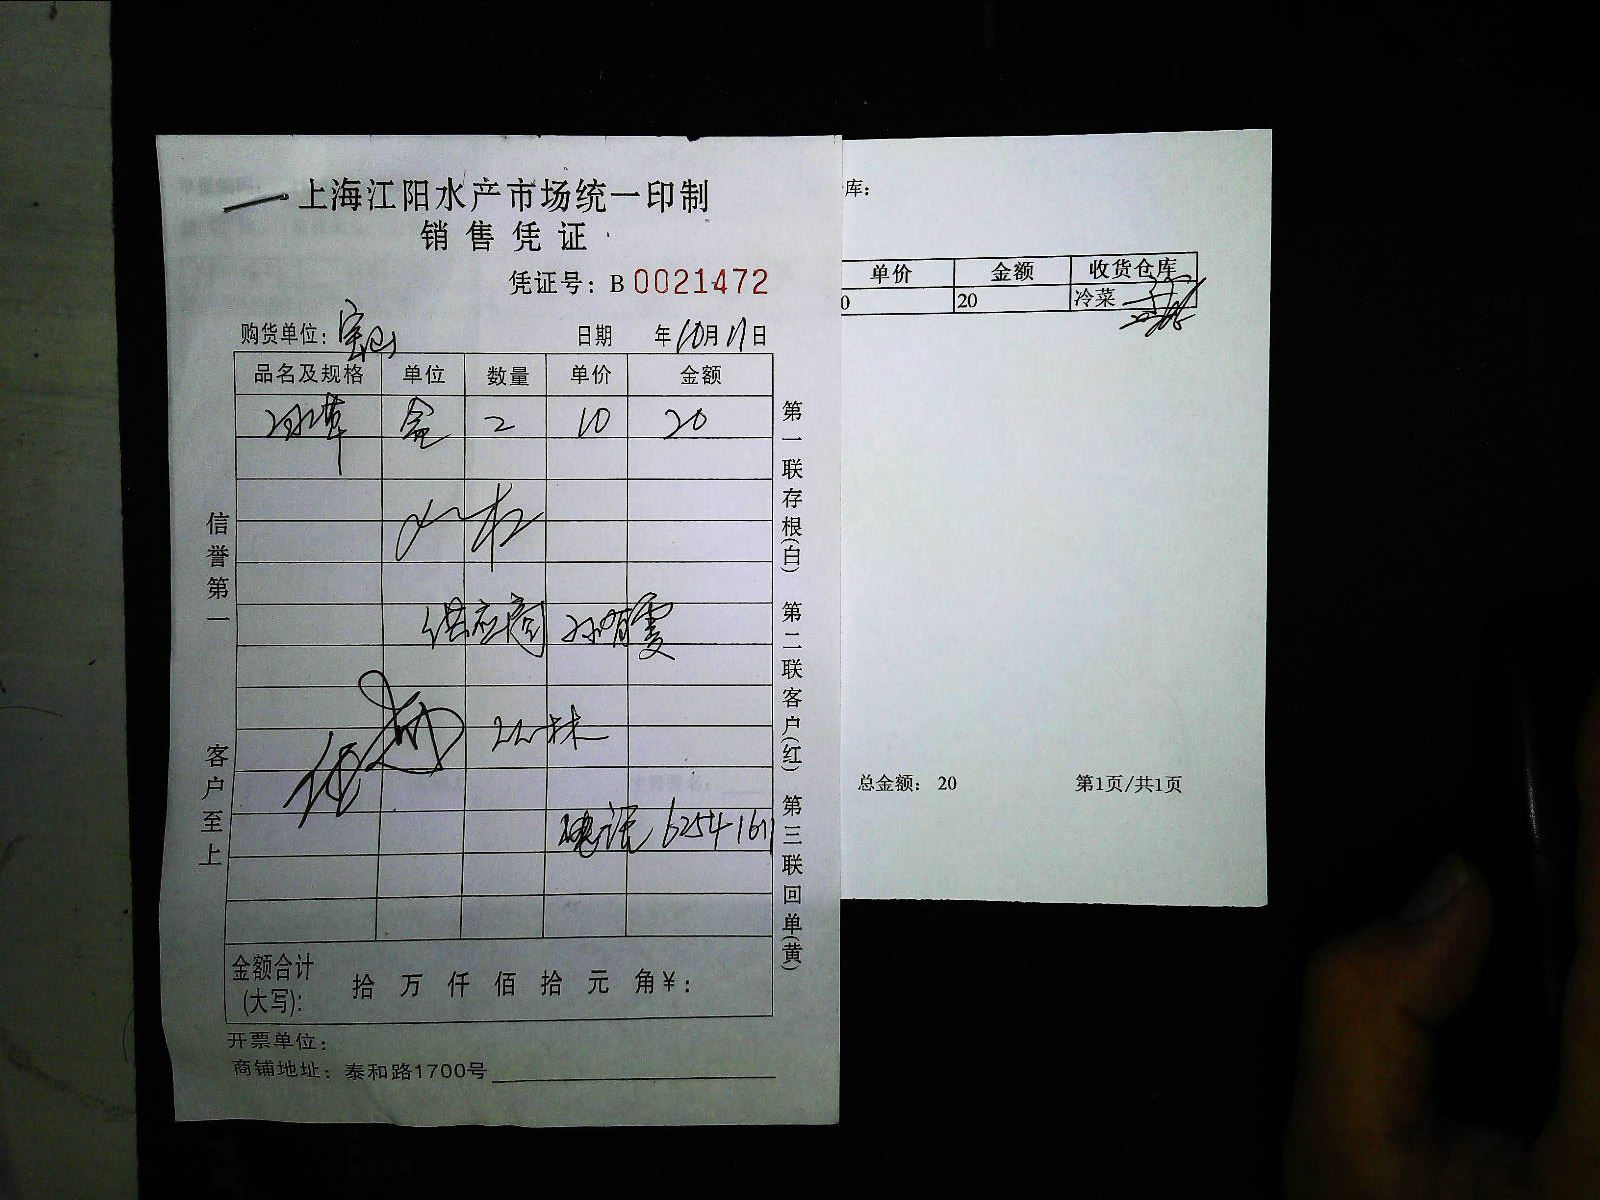 上海江阳水产市场统一印制
销售凭证
凭证号：B 0021472
购货单位：宝山 日期 年10月11日
品名及规格 单位 数量 单价 金额
冰草 盒 2 10 20
供应商 孙有雯
电话 62541611
信誉第一 客户至上
第一联存根(白) 第二联客户(红) 第三联回单(黄)
金额合计(大写)： 拾 万 仟 佰 拾 元 角¥：
开票单位：
商铺地址：泰和路1700号
库：
单价 金额 收货仓库
0 20 冷菜
总金额： 20 第1页/共1页